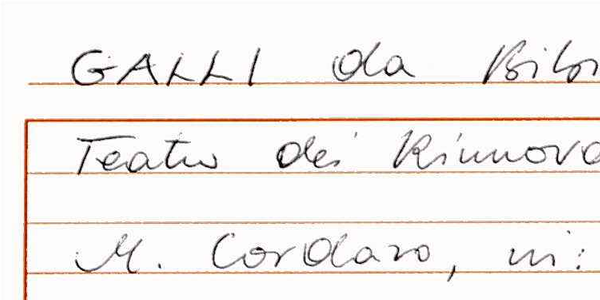 GALLI da Bibi
Teatro dei Rinnova
M. Cordaro, in: